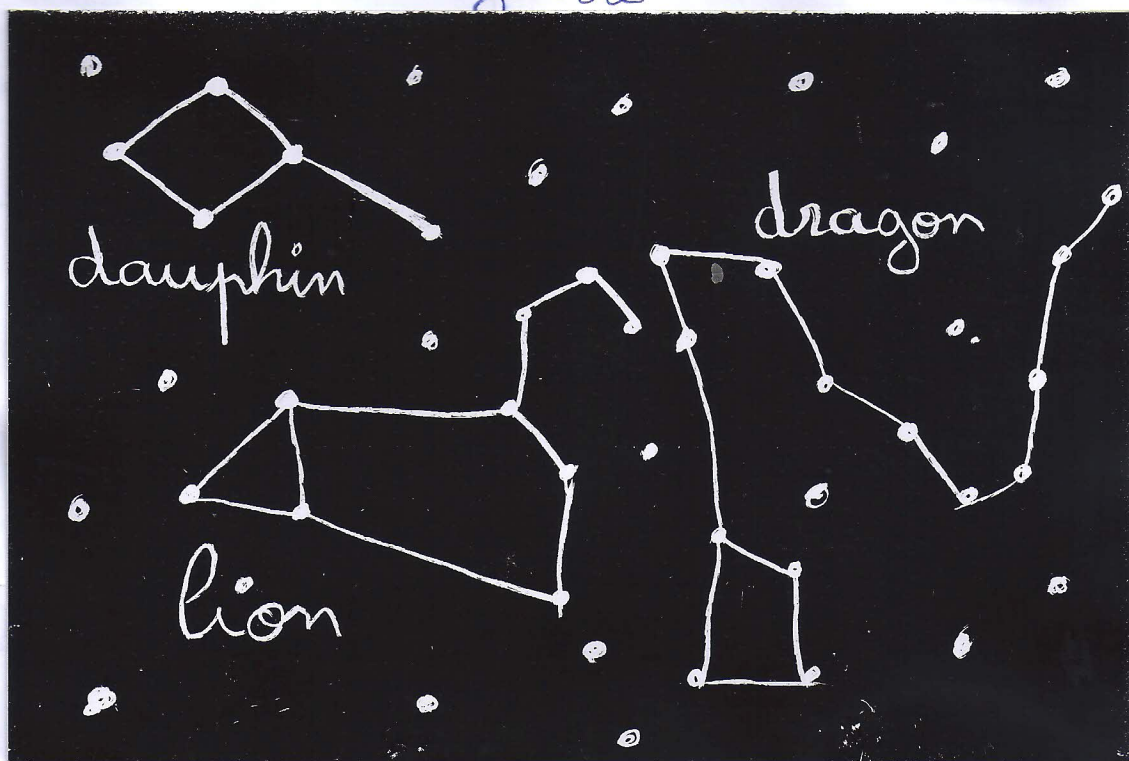 dauphin
dragon
lion